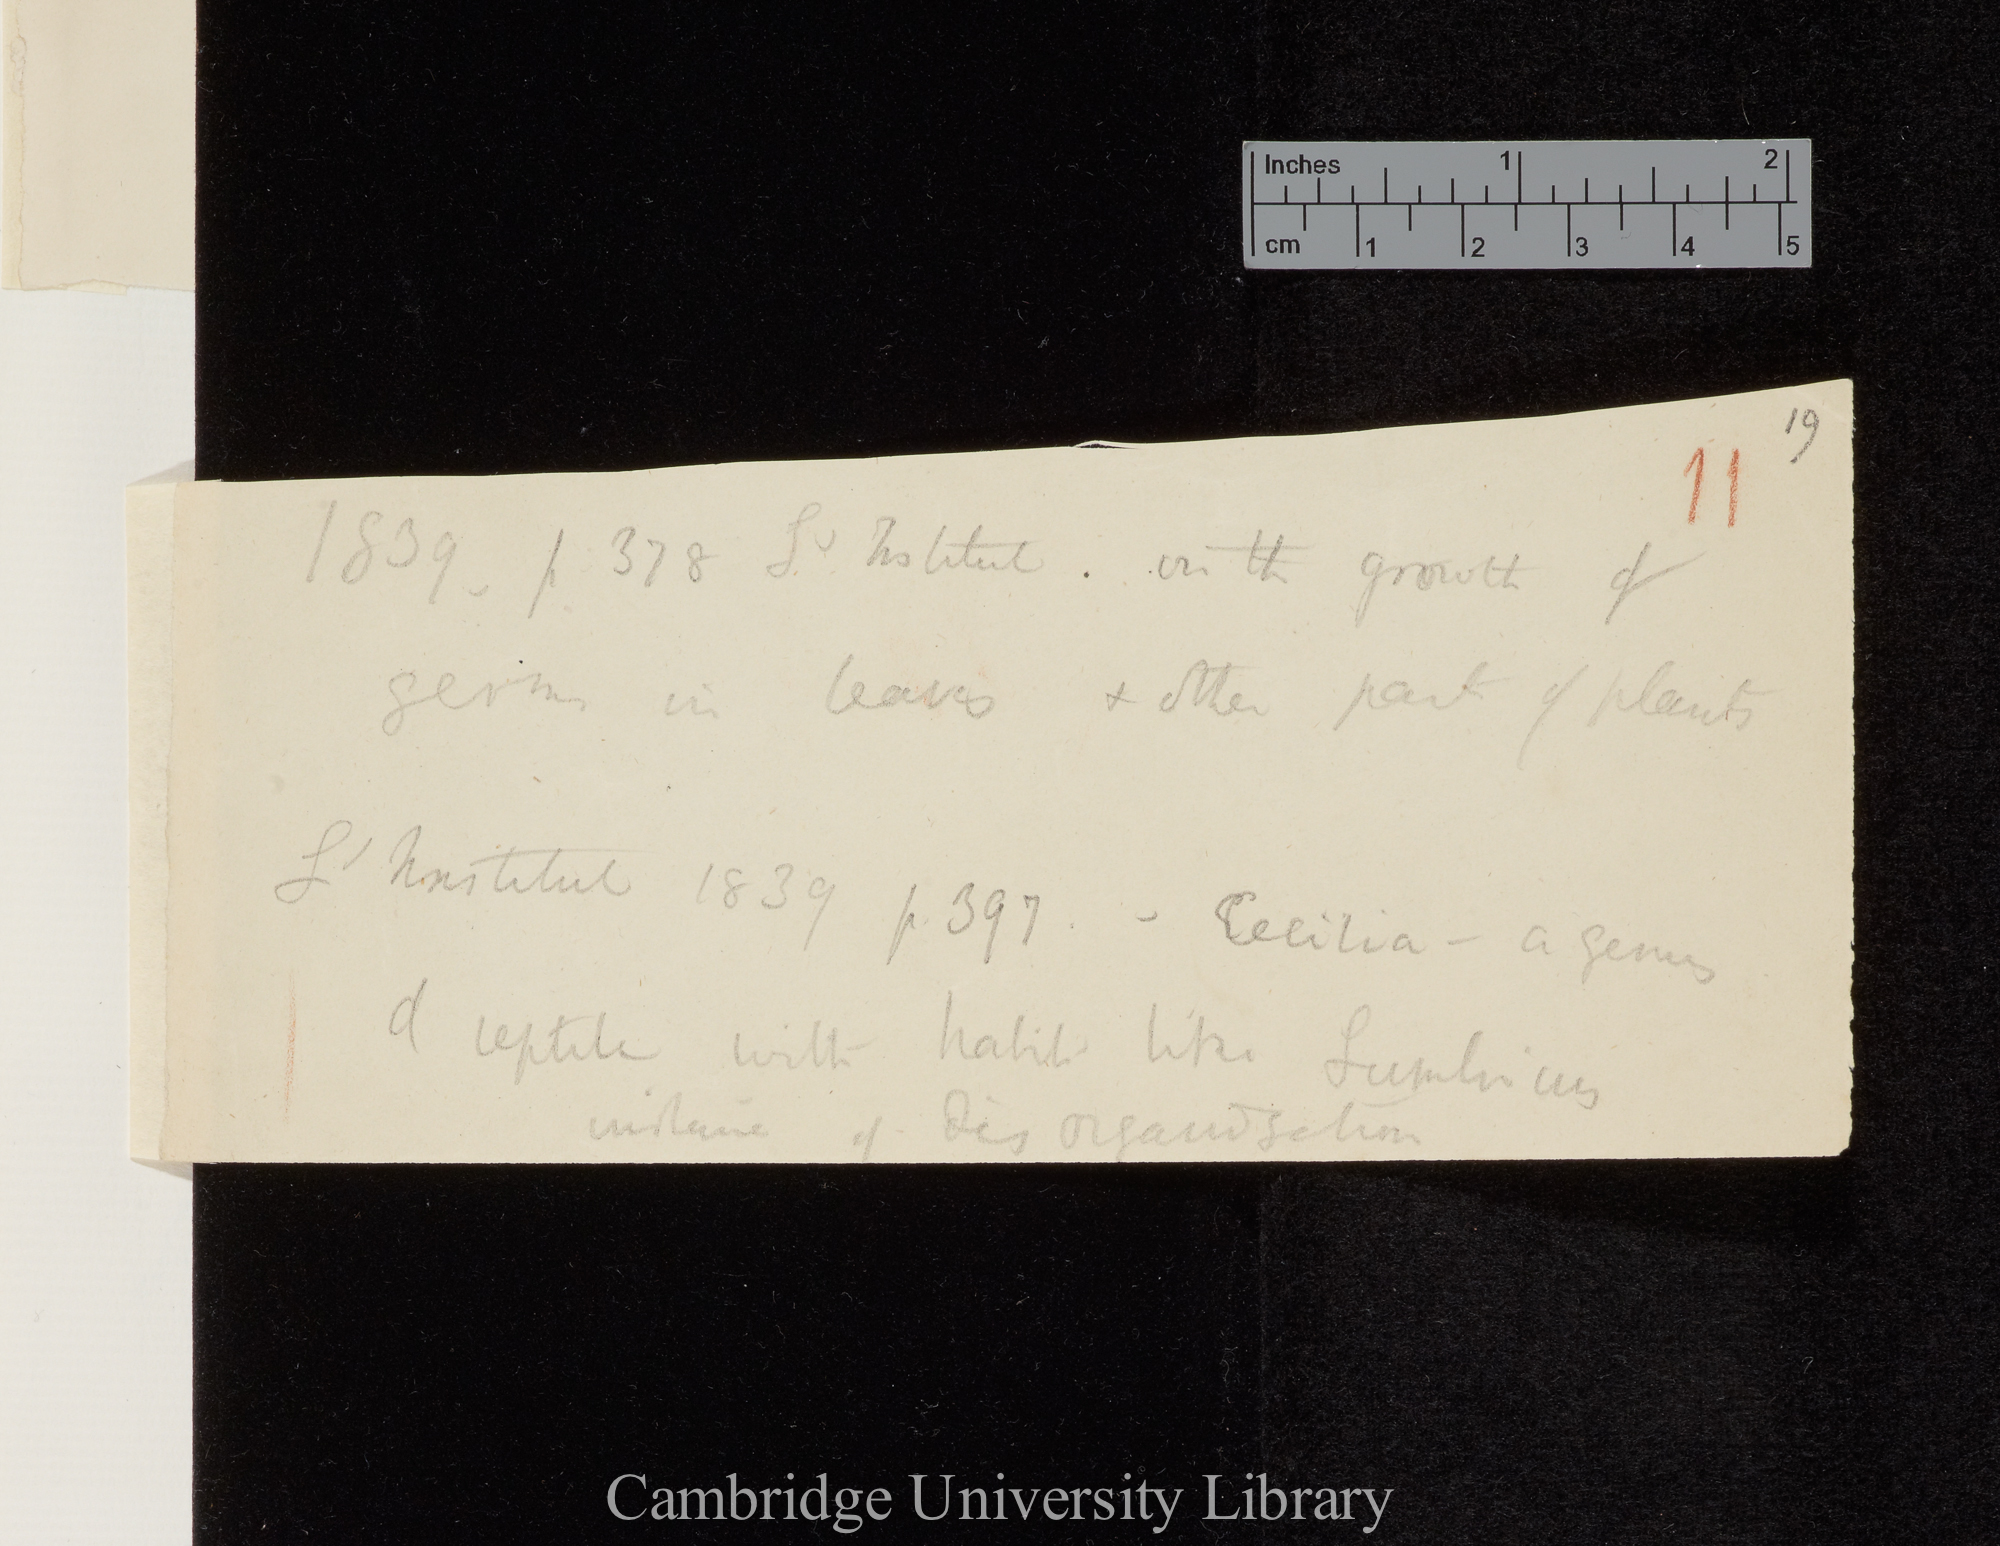 Inches 1 2
cm 1 2 3 4 5
19
11
1839. p. 378 L'Institut. on the growth of
germs in leaves & other part of plants
L'Institut 1839 p. 397. - Cecilia - a genus
of reptile with habits like Lumbricus
instance of dis organisation
Cambridge University Library